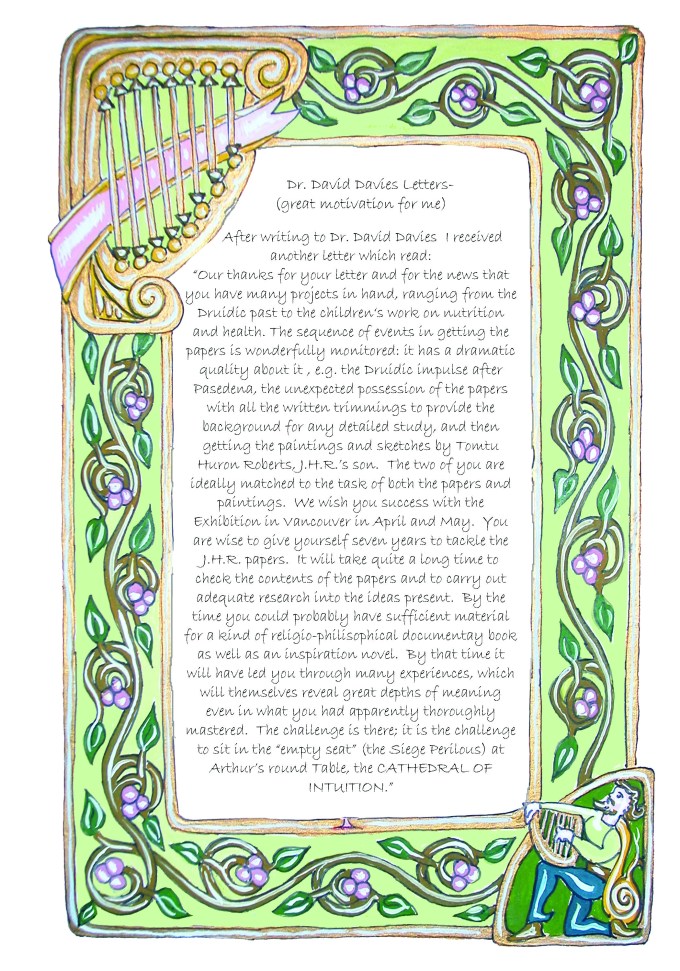 Dr. David Davies Letters-
(great motivation for me)
After writing to Dr. David Davies I received
another letter which read:
“Our thanks for your letter and for the news that
you have many projects in hand, ranging from the
Druidic past to the children's work on nutrition
and health. The sequence of events in getting the
papers is wonderfully monitored: it has a dramatic
quality about it , e.g. the Druidic impulse after
Pasedena, the unexpected possession of the papers
with all the written trimmings to provide the
background for any detailed study, and then
getting the paintings and sketches by Tomtu
Huron Roberts, J.H.R.'s son. The two of you are
ideally matched to the task of both the papers and
paintings. We wish you success with the
Exhibition in Vancouver in April and May. You
are wise to give yourself seven years to tackle the
J.H.R. papers. It will take quite a long time to
check the contents of the papers and to carry out
adequate research into the ideas present. By the
time you could probably have sufficient material
for a kind of religio-philisophical documentay book
as well as an inspiration novel. By that time it
will have led you through many experiences, which
will themselves reveal great depths of meaning
even in what you had apparently thoroughly
mastered. The challenge is there; it is the challenge
to sit in the “empty seat” (the Siege Perilous) at
Arthur's round Table, the CATHEDRAL OF
INTUITION.”